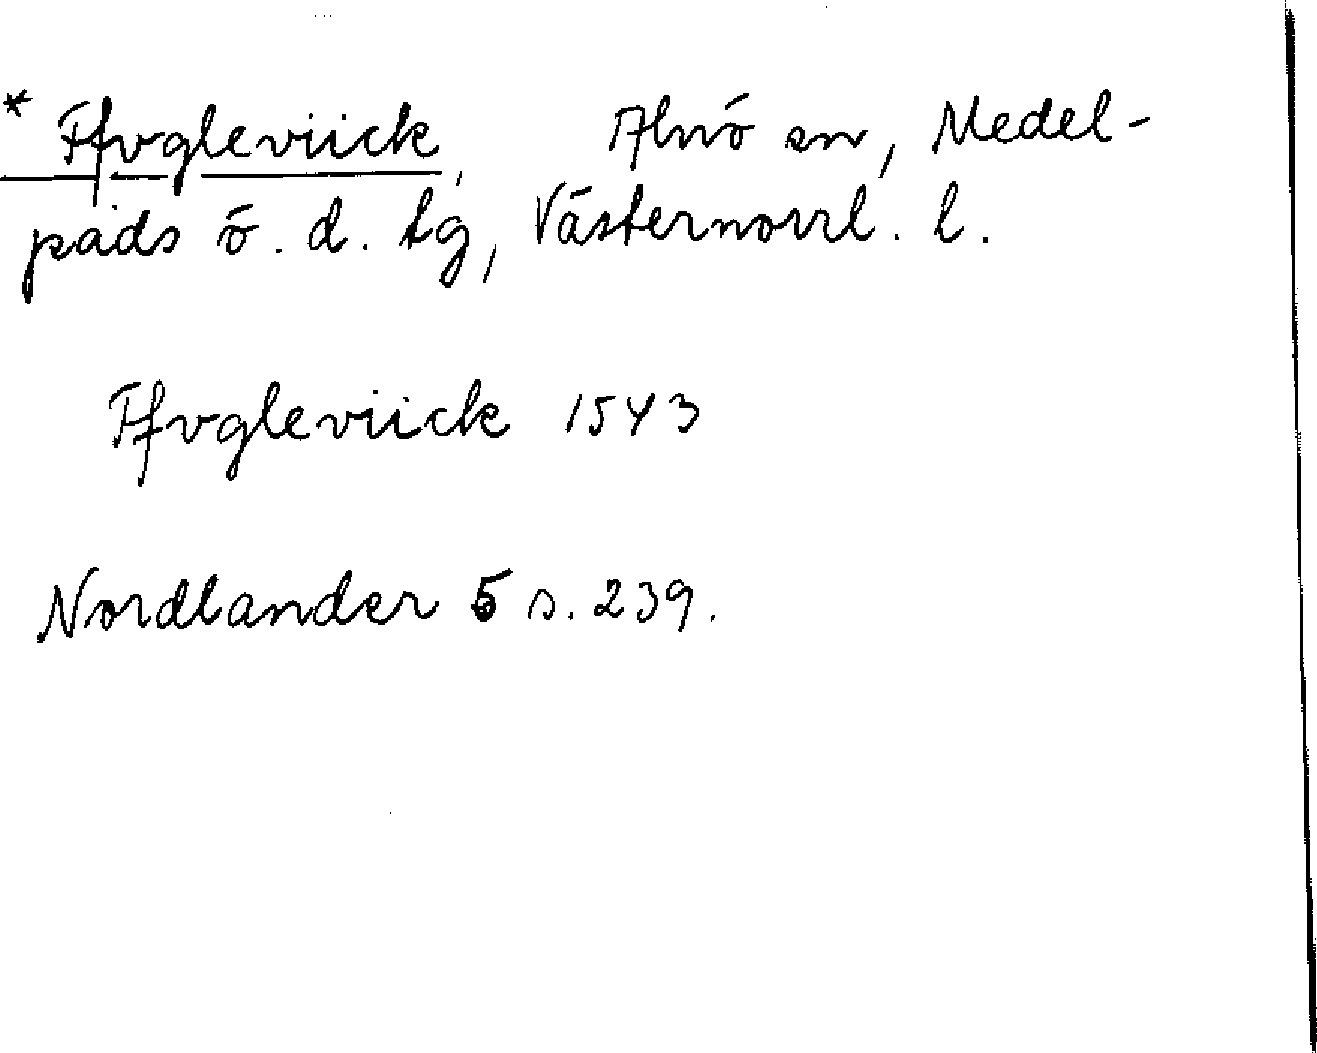 * Ffvgleviick, Alnö sn, Medel-
pads ö. d. tg, Västernorrl. l.
Ffvgleviick 1543
Nordlander 5 s. 239.